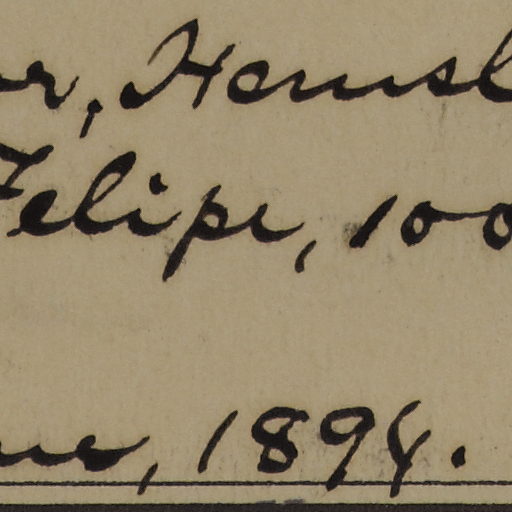 r, Hemsl
Felipe, 100
ne, 1894.